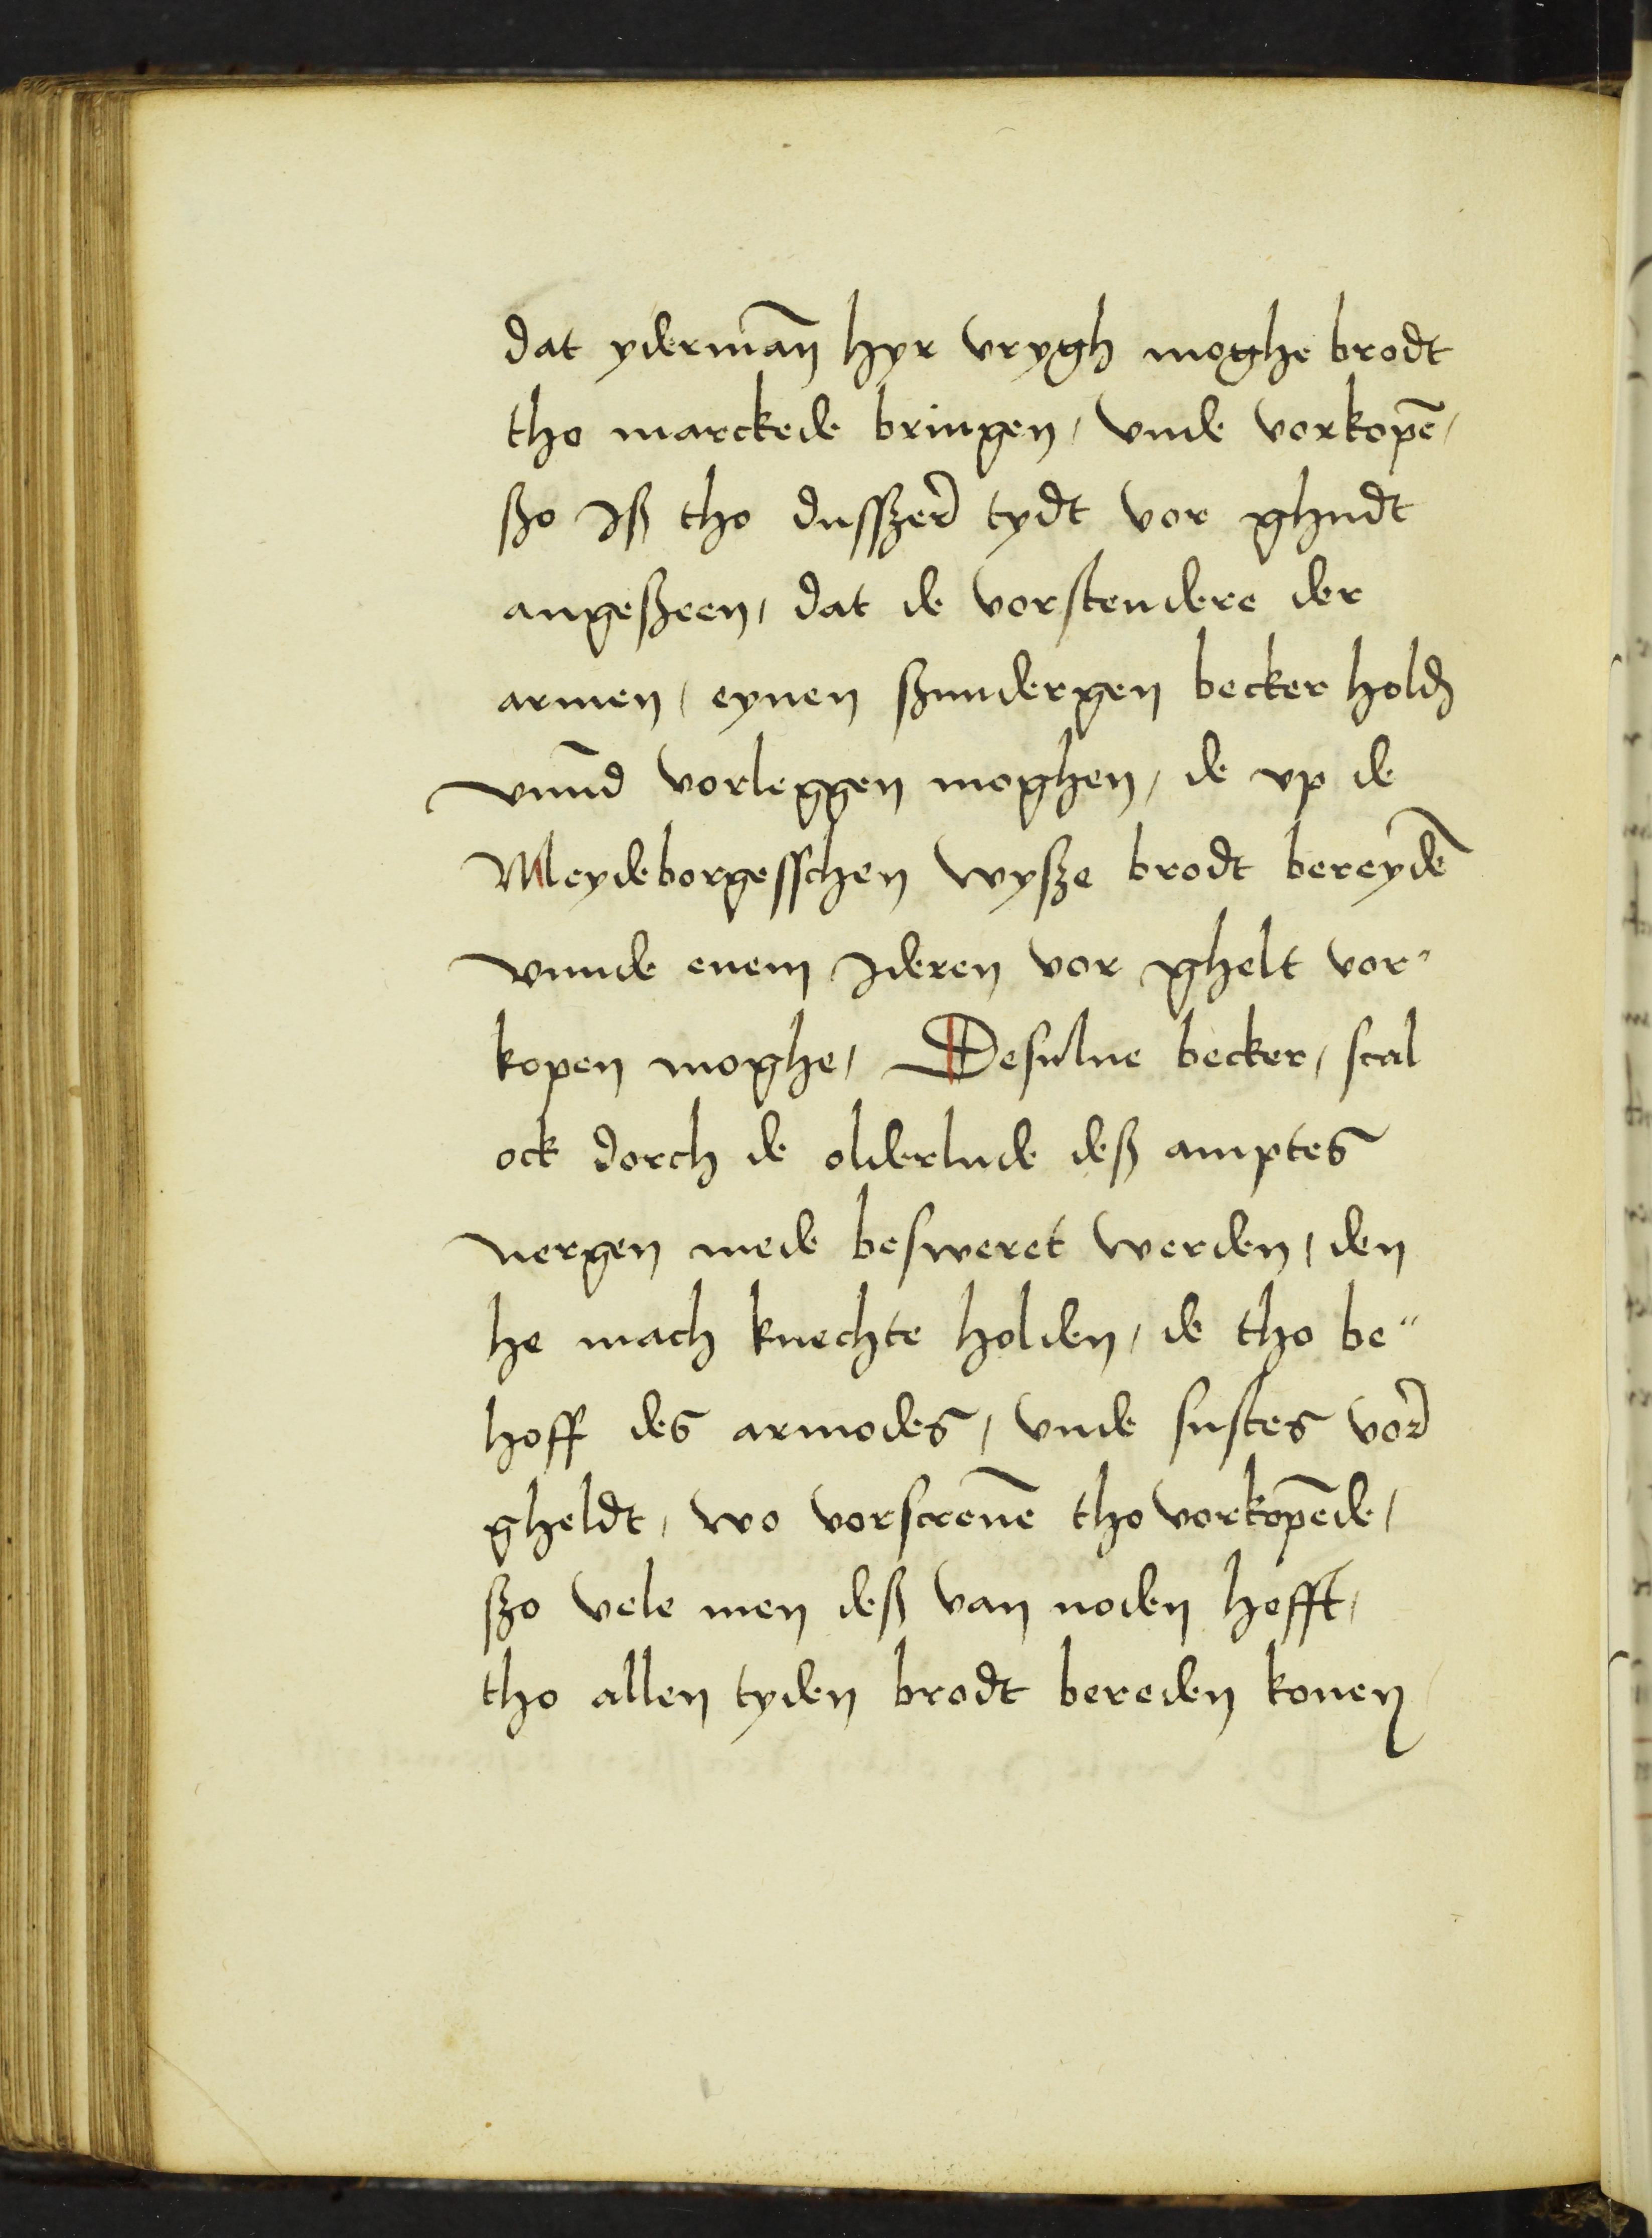 dat ydermān hyr vrygh moghe brodt
tho marckede bringen, vnde vorkopē,
ßo Iß tho dusszer tydt vor ghudt
angeßeen, dat de vorstendere der
armen, eynen ßundergen becker hold̄
vnnd vorleggen moghen, de vp de
Meydeborgesschen wysze brodt bereydē
vnnde enem Ideren vor ghelt vor"
kopen moghe, Desulue becker, scal
ock dorch de olderlude deß amptes
nergen mede besweret werden, den
he mach knechte holden, de tho be"
hoff des armodes, vnde sustes vor
gheldt, wo vorscreuē tho vorkopēde,
ßo vele men deß van noden hefft,
tho allen tyden brodt bereden konen